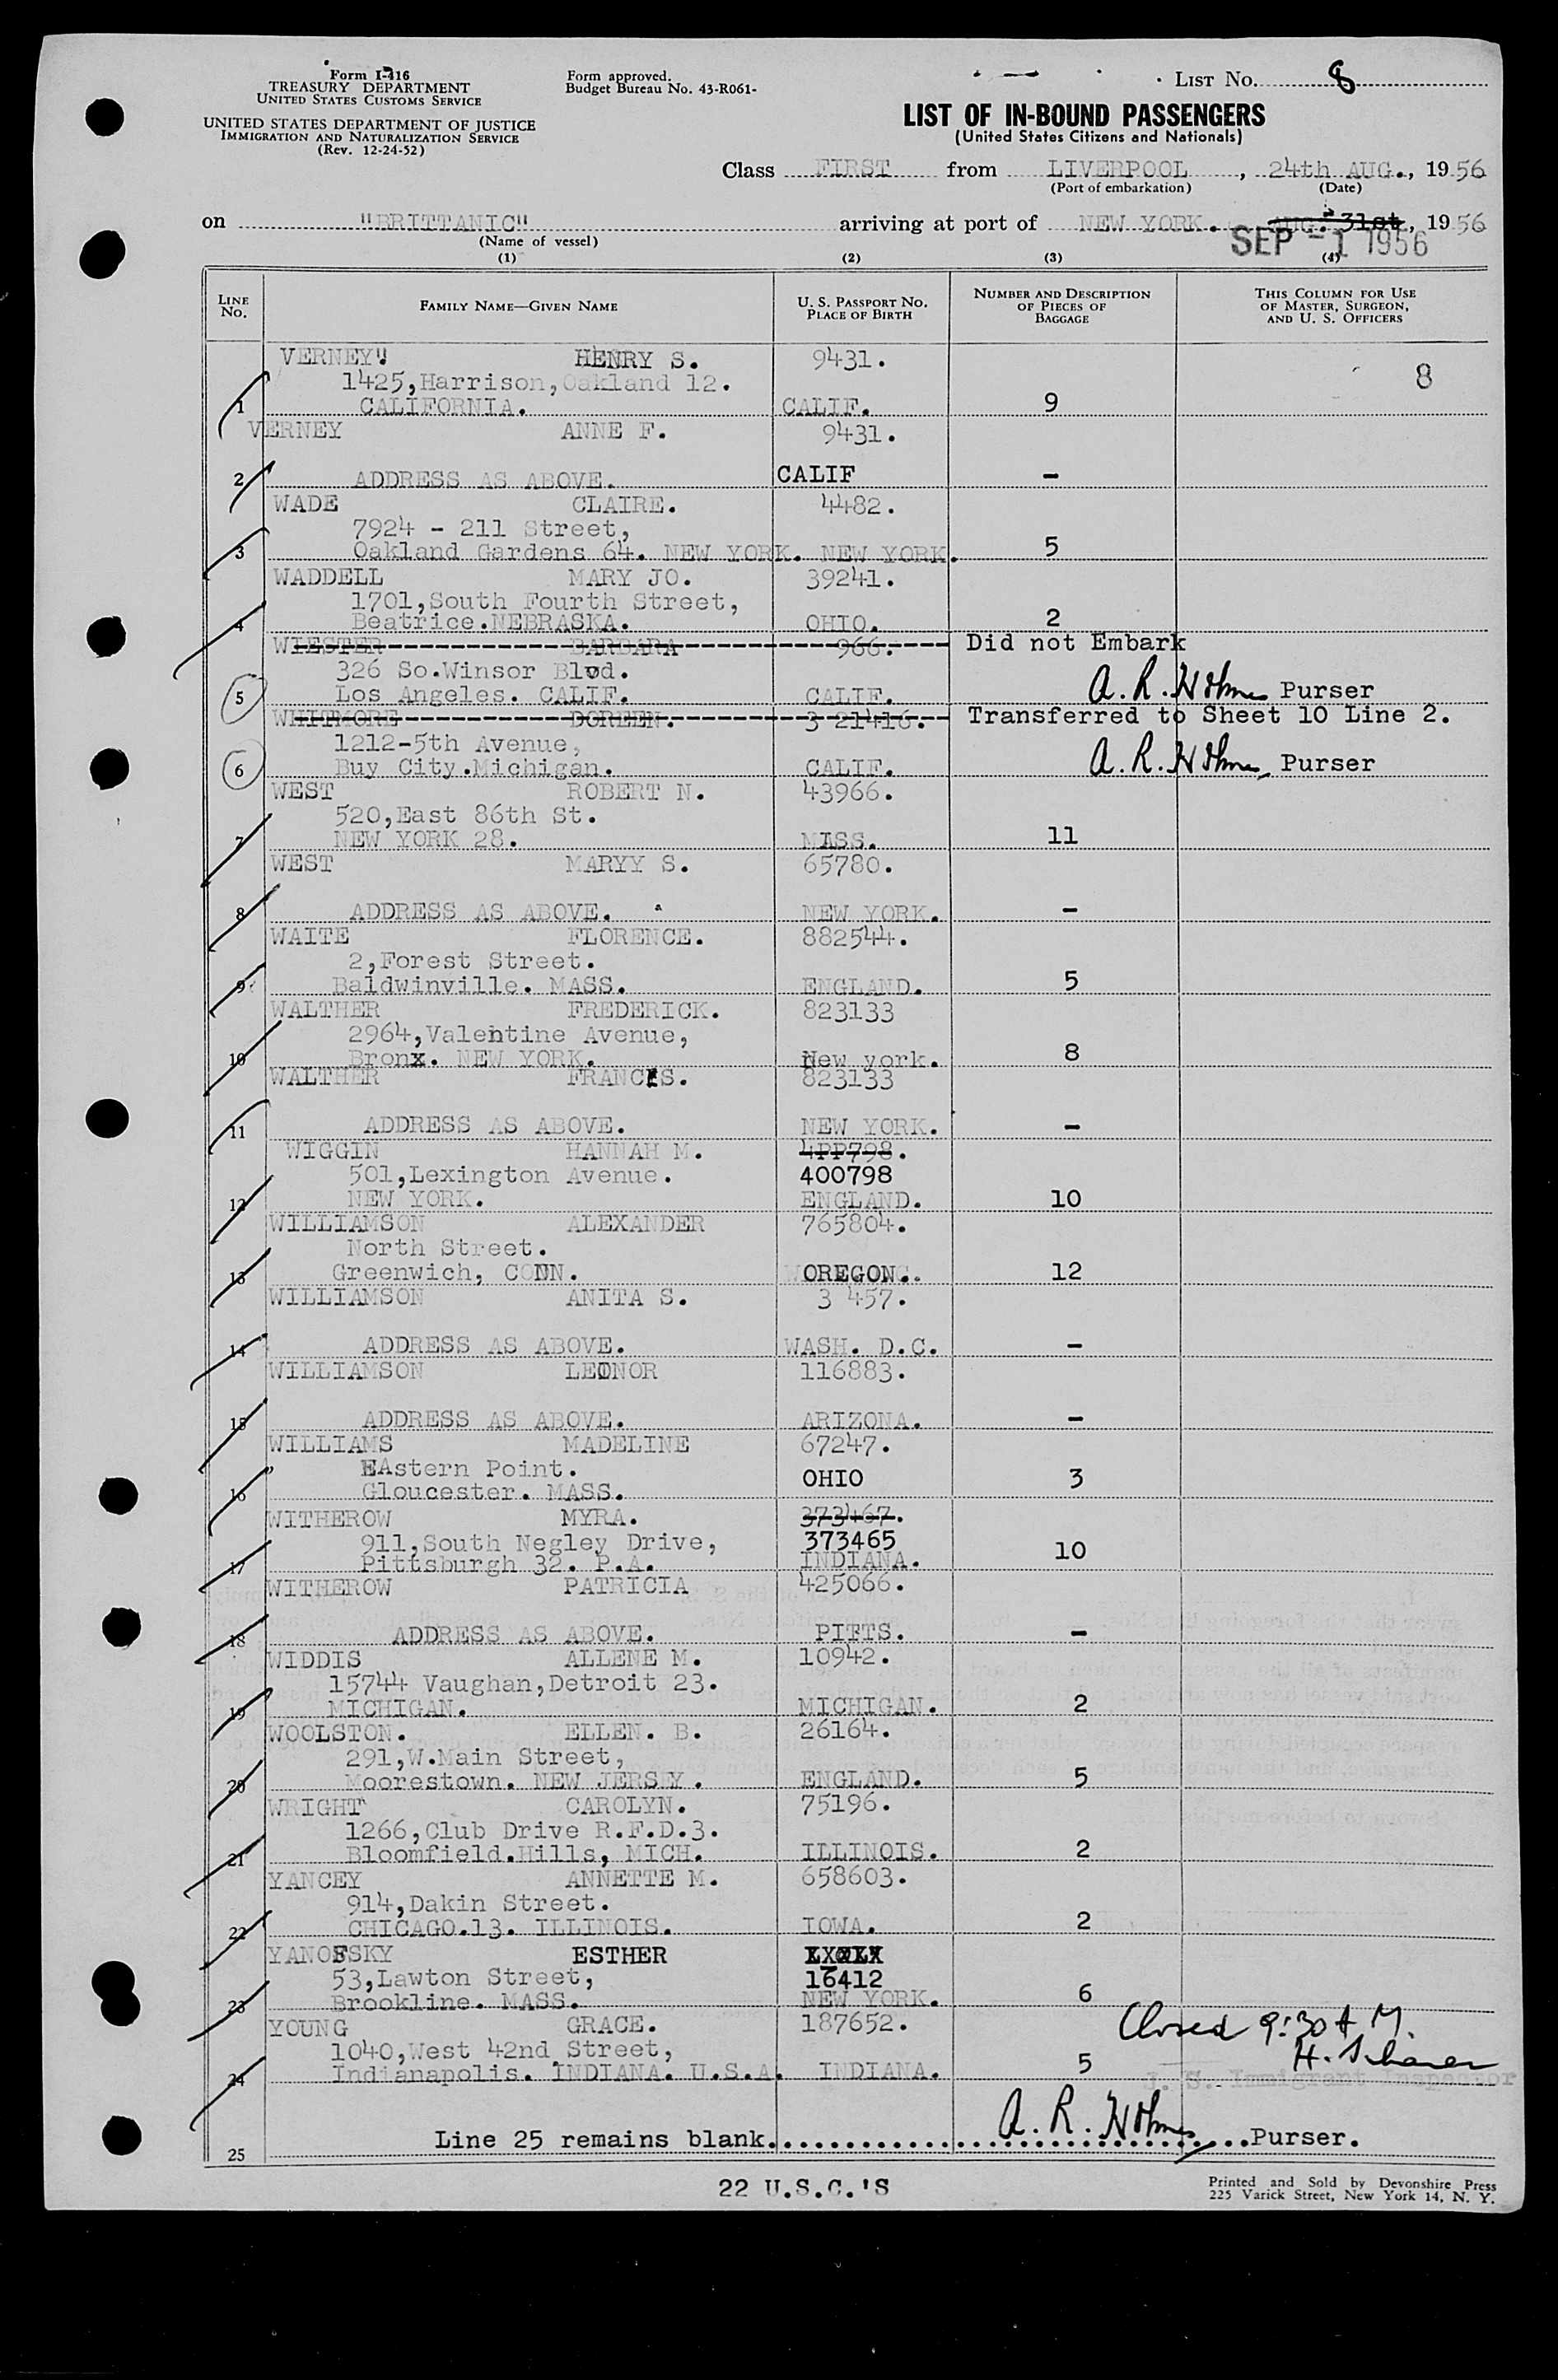 Form I-416
TREASURY DEPARTMENT
UNITED STATES CUSTOMS SERVICE
UNITED STATES DEPARTMENT OF JUSTICE
IMMIGRATION AND NATURALIZATION SERVICE
(Rev. 12-24-52)
Form approved.
Budget Bureau No. 43-R061-
LIST No. 8
LIST OF IN-BOUND PASSENGERS
(United States Citizens and Nationals)
Class FIRST from LIVERPOOL, 24th AUG., 1956
(Port of embarkation) (Date)
on "BRITTANIC" arriving at port of NEW YORK. AUG. 31st, 1956
(Name of vessel) SEP -1 1956
(1) (2) (3) (4)
LINE No. FAMILY NAME—GIVEN NAME U. S. PASSPORT NO. PLACE OF BIRTH NUMBER AND DESCRIPTION OF PIECES OF BAGGAGE THIS COLUMN FOR USE OF MASTER, SURGEON, AND U. S. OFFICERS
VERNEY. HENRY S. 9431.
1425,Harrison,Oakland 12. 8
1 CALIFORNIA. CALIF. 9
VERNEY ANNE F. 9431.
2 ADDRESS AS ABOVE. CALIF -
WADE CLAIRE. 4482.
7924 - 211 Street,
3 Oakland Gardens 64. NEW YORK. NEW YORK. 5
WADDELL MARY JO. 39241.
1701,South Fourth Street,
4 Beatrice.NEBRASKA. OHIO. 2
WIESTER BARBARA 966. Did not Embark
326 So.Winsor Blvd.
5 Los Angeles. CALIF. CALIF. A. R. Holmes Purser
WHITMORE DOREEN. 3 21416. Transferred to Sheet 10 Line 2.
1212-5th Avenue,
6 Buy City.Michigan. CALIF. A. R. Holmes Purser
WEST ROBERT N. 43966.
520,East 86th St.
7 NEW YORK 28. MASS. 11
WEST MARYY S. 65780.
8 ADDRESS AS ABOVE. NEW YORK. -
WAITE FLORENCE. 882544.
2,Forest Street.
9 Baldwinville. MASS. ENGLAND. 5
WALTHER FREDERICK. 823133
2964,Valentine Avenue,
10 Bronx. NEW YORK. New york. 8
WALTHER FRANCES. 823133
11 ADDRESS AS ABOVE. NEW YORK. -
WIGGIN HANNAH M. 4PP798.
501,Lexington Avenue. 400798
12 NEW YORK. ENGLAND. 10
WILLIAMSON ALEXANDER 765804.
North Street.
13 Greenwich, CONN. OREGON. 12
WILLIAMSON ANITA S. 3 457.
14 ADDRESS AS ABOVE. WASH. D.C. -
WILLIAMSON LEONOR 116883.
15 ADDRESS AS ABOVE. ARIZONA. -
WILLIAMS MADELINE 67247.
EAstern Point. OHIO 3
16 Gloucester. MASS.
WITHEROW MYRA. 373467.
911,South Negley Drive, 373465
17 Pittsburgh 32. P.A. INDIANA. 10
WITHEROW PATRICIA 425066.
18 ADDRESS AS ABOVE. PITTS. -
WIDDIS ALLENE M. 10942.
15744 Vaughan,Detroit 23.
19 MICHIGAN. MICHIGAN. 2
WOOLSTON. ELLEN. B. 26164.
291,W.Main Street,
20 Moorestown. NEW JERSEY. ENGLAND. 5
WRIGHT CAROLYN. 75196.
1266,Club Drive R.F.D.3.
21 Bloomfield.Hills, MICH. ILLINOIS. 2
YANCEY ANNETTE M. 658603.
914,Dakin Street.
22 CHICAGO.13. ILLINOIS. IOWA. 2
YANOFSKY ESTHER
53,Lawton Street, 16412
23 Brookline. MASS. NEW YORK. 6
YOUNG GRACE. 187652. Closed 9:30 A M.
1040,West 42nd Street,
24 Indianapolis. INDIANA. U.S.A. INDIANA. 5 U. S. Immigrant Inspector
25 Line 25 remains blank. A. R. Holmes Purser.
22 U.S.C.'S
Printed and Sold by Devonshire Press
225 Varick Street, New York 14, N. Y.